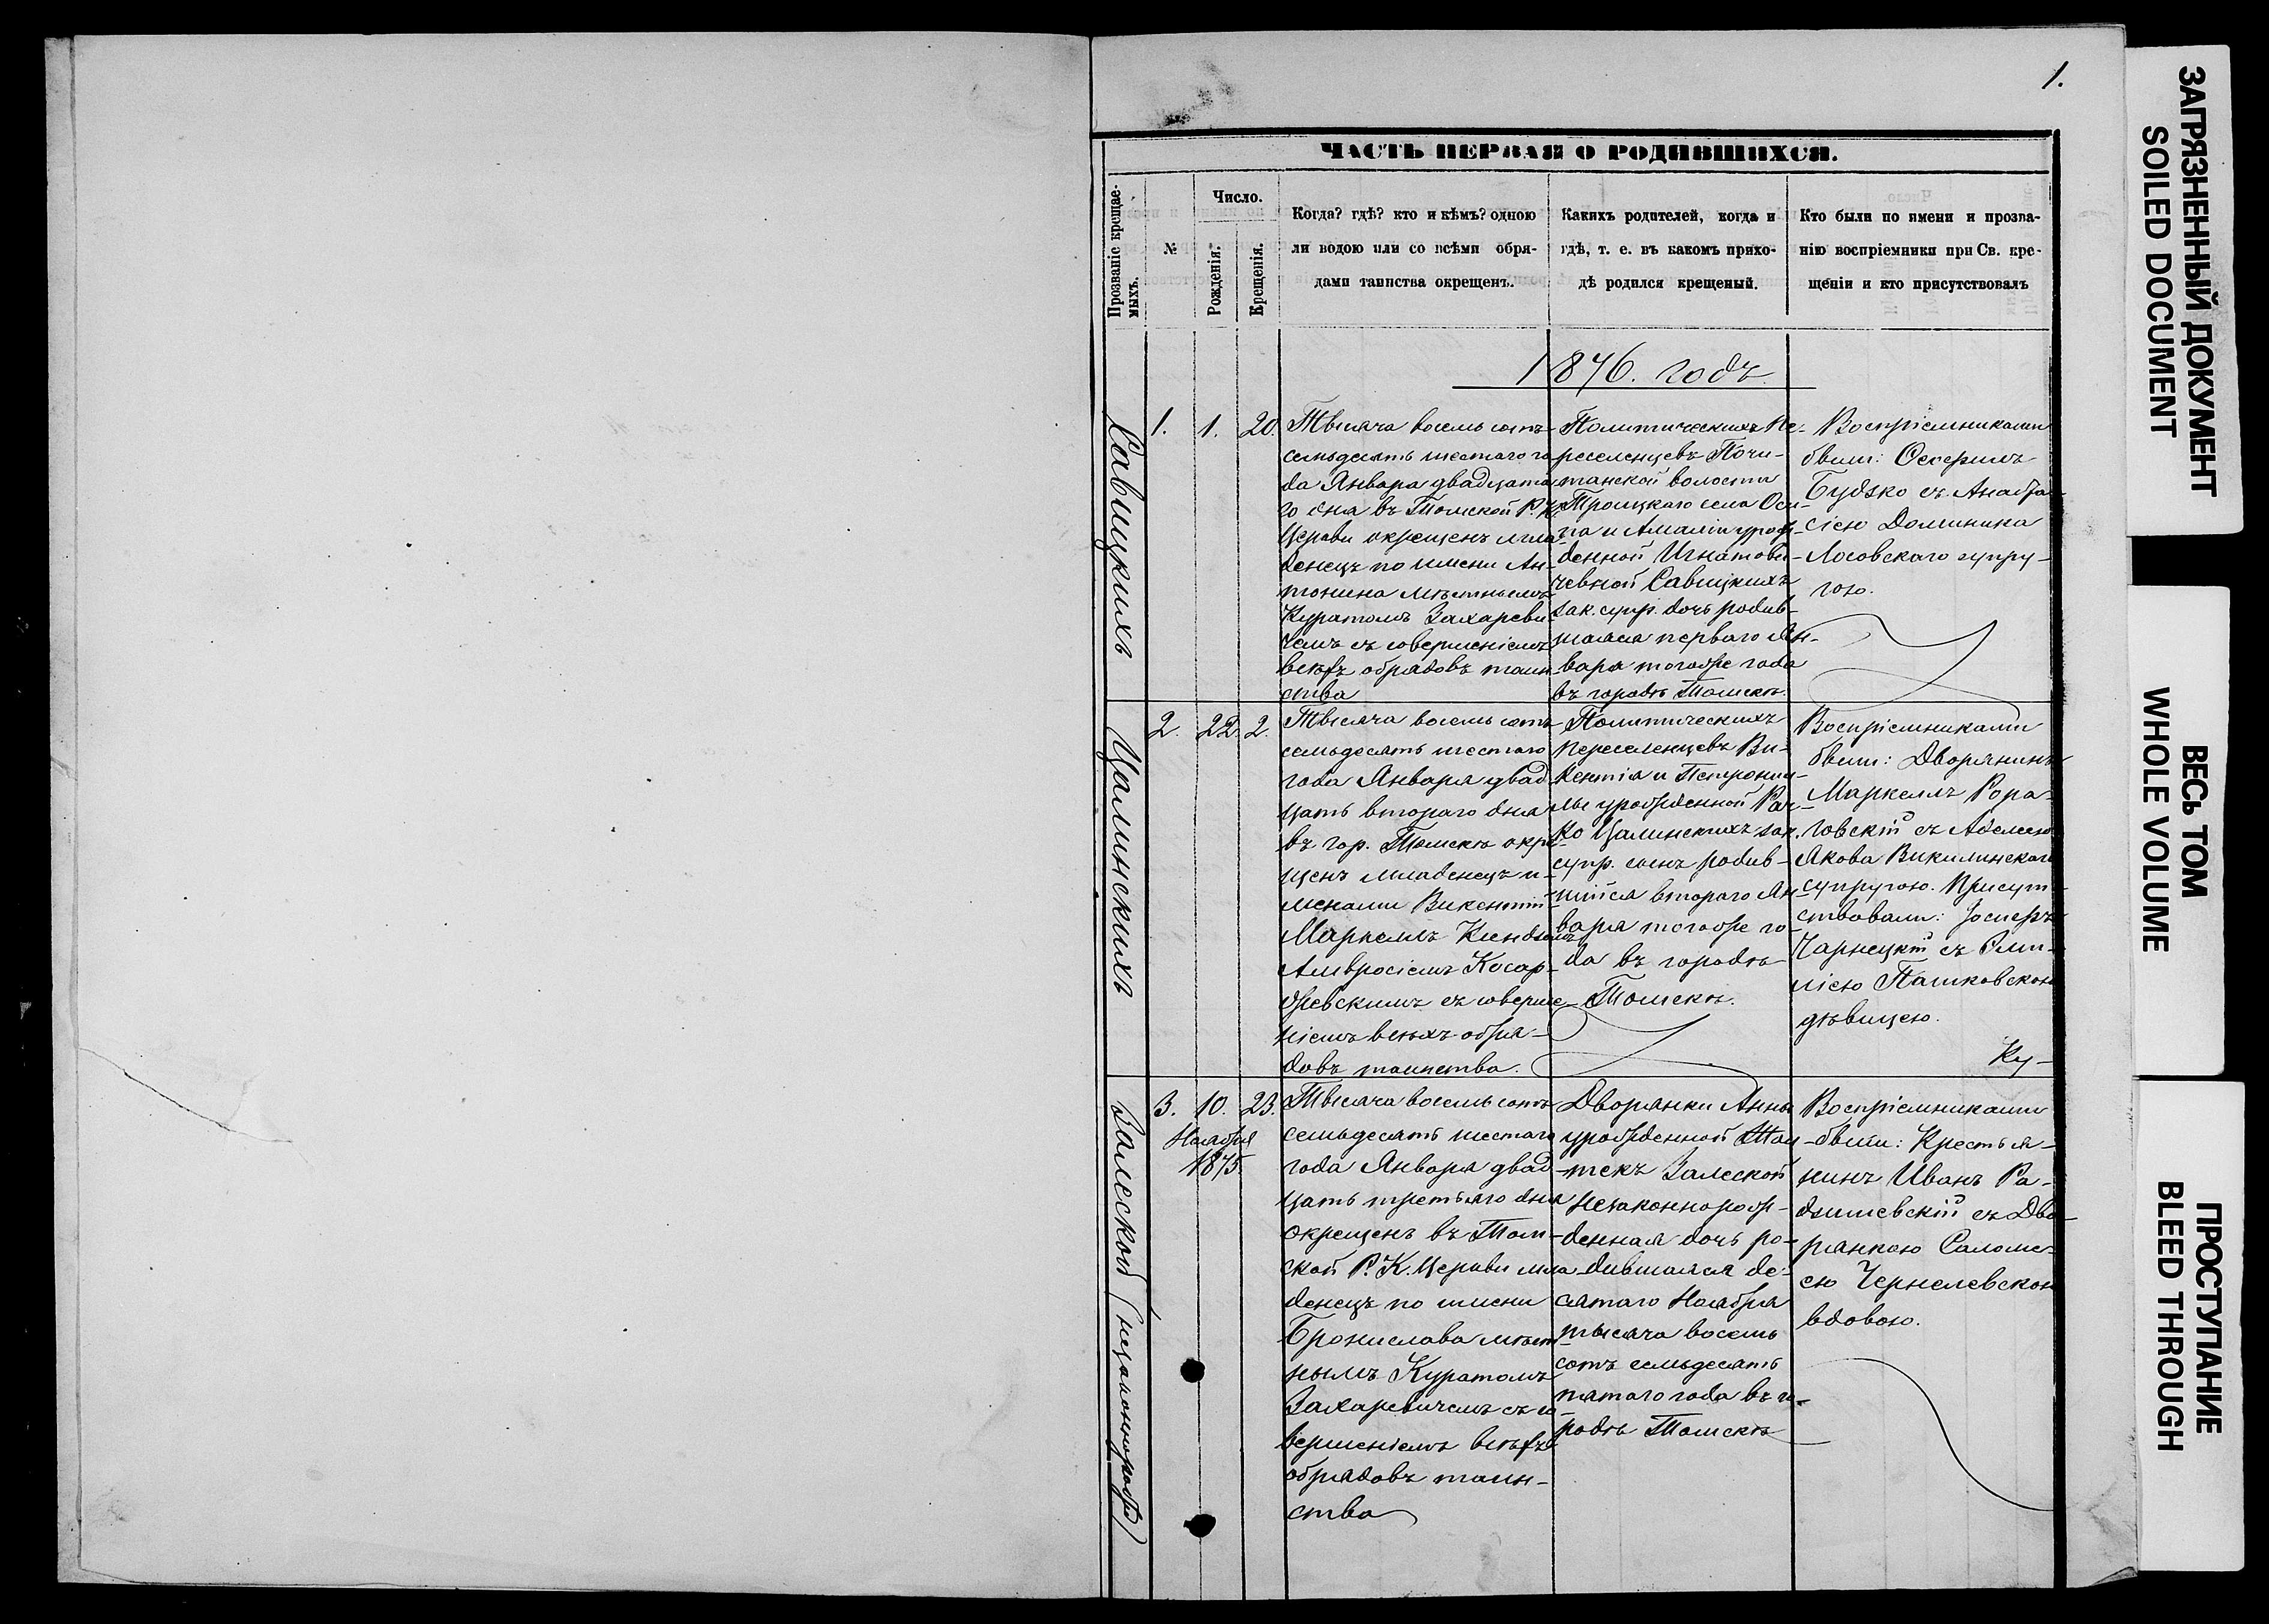 1.
ЧАСТЬ ПЕРВАЯ О РОДИВШИХСЯ.
Прозваніе крещае-
мыхъ.
№
Число.
Рожденія.
Крещенія.
Когда? гдѣ? кто и кѣмъ? одною
ли водою или со всѣми обря-
дами таинства окрещенъ.
Какихъ родителей, когда и
гдѣ, т. е. въ какомъ прихо-
дѣ родился крещеный.
Кто были по имени и прозва-
нію воспріемники при Св. кре-
щеніи и кто присутствовалъ
1876. годъ
Савицкихъ
1.
1.
20.
Тысяча восемь сотъ
семьдесятъ шестаго го
да Января двадцата
го дня въ Томской Р. К.
Церкви окрещенъ мла
денецъ по имени Ан-
тонина мѣстнымъ
Куратомъ Захареви-
чемъ съ совершеніемъ
всѣхъ обрядовъ таин
ства
Политическихъ пе-
реселенцевъ Почи-
танской волости
Троицкаго села Оси-
па и Амаліи урож-
денной Игнатови-
чевной Савицкихъ
зак. супр. дочь родив-
шаяся перваго Ян-
варя тогоже года
въ городѣ Томскѣ.
Воспріемниками
были:
Будзко съ
сіею Доминика
Лосовскаго супру-
гою.
Цалинскихъ
2.
22.
2.
Тысяча восемь сотъ
семьдесятъ шестаго
года Января двад
цать втораго дня
въ гор. Томскѣ окре
щенъ младенецъ и-
менами Викентій
Маркелъ Ксендзомъ
Амвросіемъ Косар-
жевскимъ съ соверше
ніемъ всѣхъ обря-
довъ таинства.
Политическихъ
переселенцевъ Ви-
кентія и Петронил-
лы урожденной Рач-
ко Цалинскихъ зак.
супр. сынъ родив-
шійся втораго Ян
варя тогоже го-
да въ городѣ
Томскѣ.
Воспріемниками
были: Дворянинъ
Маркелъ Рора-
говскій съ
Якова Викилинскаго
супругою. Присут-
ствовали: Іосифъ
Чарнецкій съ Эми-
ліею Пашковскою
дѣвицею.
Ку-
Залеской (незаконнорожд)
3.
10.
23.
Ноября
1875.
Тысяча восемь сотъ
семьдесятъ шестаго
года Января двад
цать третьяго дня
окрещенъ въ Том-
ской Р. К. Церкви мла
денецъ по имени
Бронислава мѣст
нымъ Куратомъ
Захаревичемъ съ со
вершеніемъ всѣхъ
обрядовъ таин-
ства
Дворянки Анны
урожденной
Залеской
незаконнорож-
денная дочь ро-
дившаяся де-
сятаго Ноября
тысяча восемь
сотъ семьдесятъ
пятаго года въ го-
родѣ Томскѣ
Воспріемниками
были: Крестья-
нинъ Иванъ Ра-
дзишевскій съ Дво-
рянкою Саломе-
ею Чернелевскою
вдовою.
ЗАГРЯЗНЕННЫЙ ДОКУМЕНТ
SOILED DOCUMENT
ВЕСЬ ТОМ
WHOLE VOLUME
ПРОСТУПАНИЕ
BLEED THROUGH